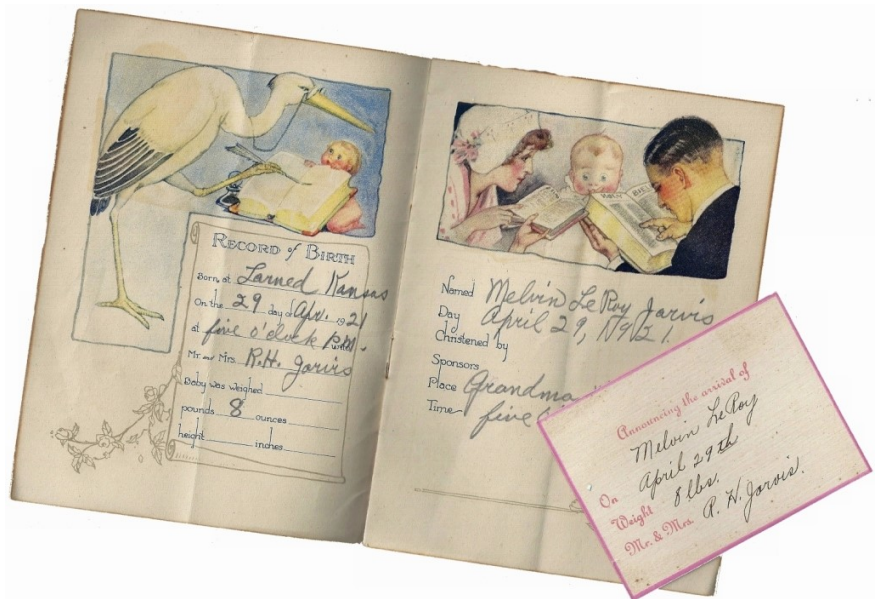 RECORD of BIRTH
Born at Larned Kansas
On the 29 day of Apr. 1921
at five o'clock P.M.
Mr. and Mrs. R.H. Jarvis
Baby was weighed
pounds 8 ounces
height inches
HOLY BIBLE
Named Melvin LeRoy Jarvis
Day April 29, 1921.
Christened by
Sponsors
Place Grandma
Time five
Announcing the arrival of
Melvin LeRoy
On April 29th
Weight 8 lbs.
Mr. & Mrs. R. H. Jarvis.